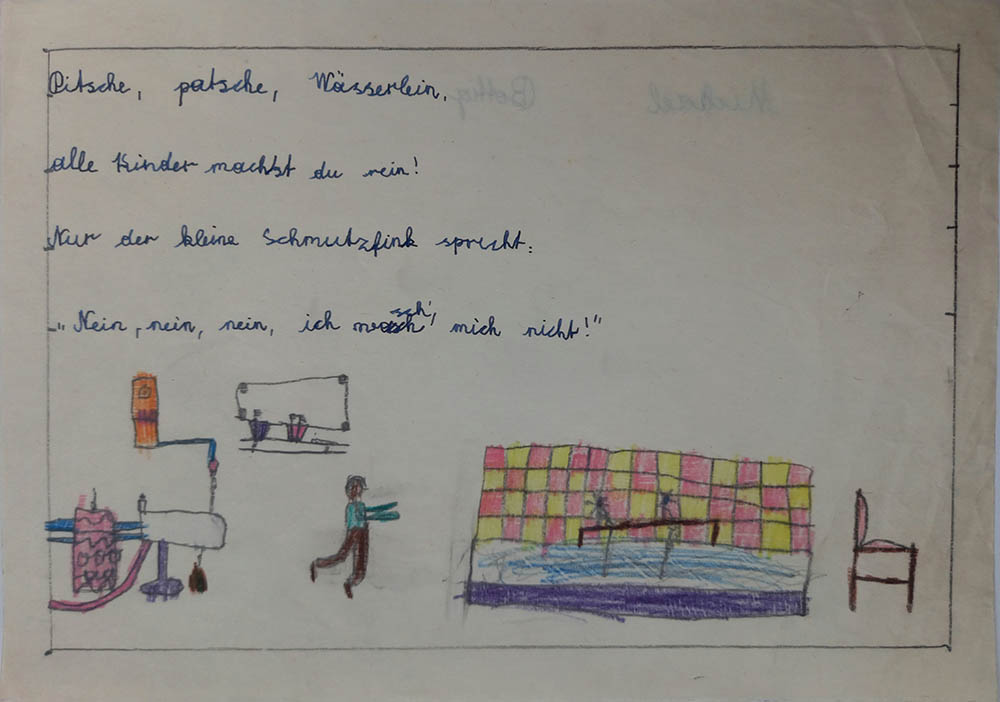 Pitsche, patsche, Wässerlein,
Michael
alle Kinder machst du rein!
Nur der kleine Schmutzfink spricht:
„Nein, nein, nein, ich wasch' mich nicht!"